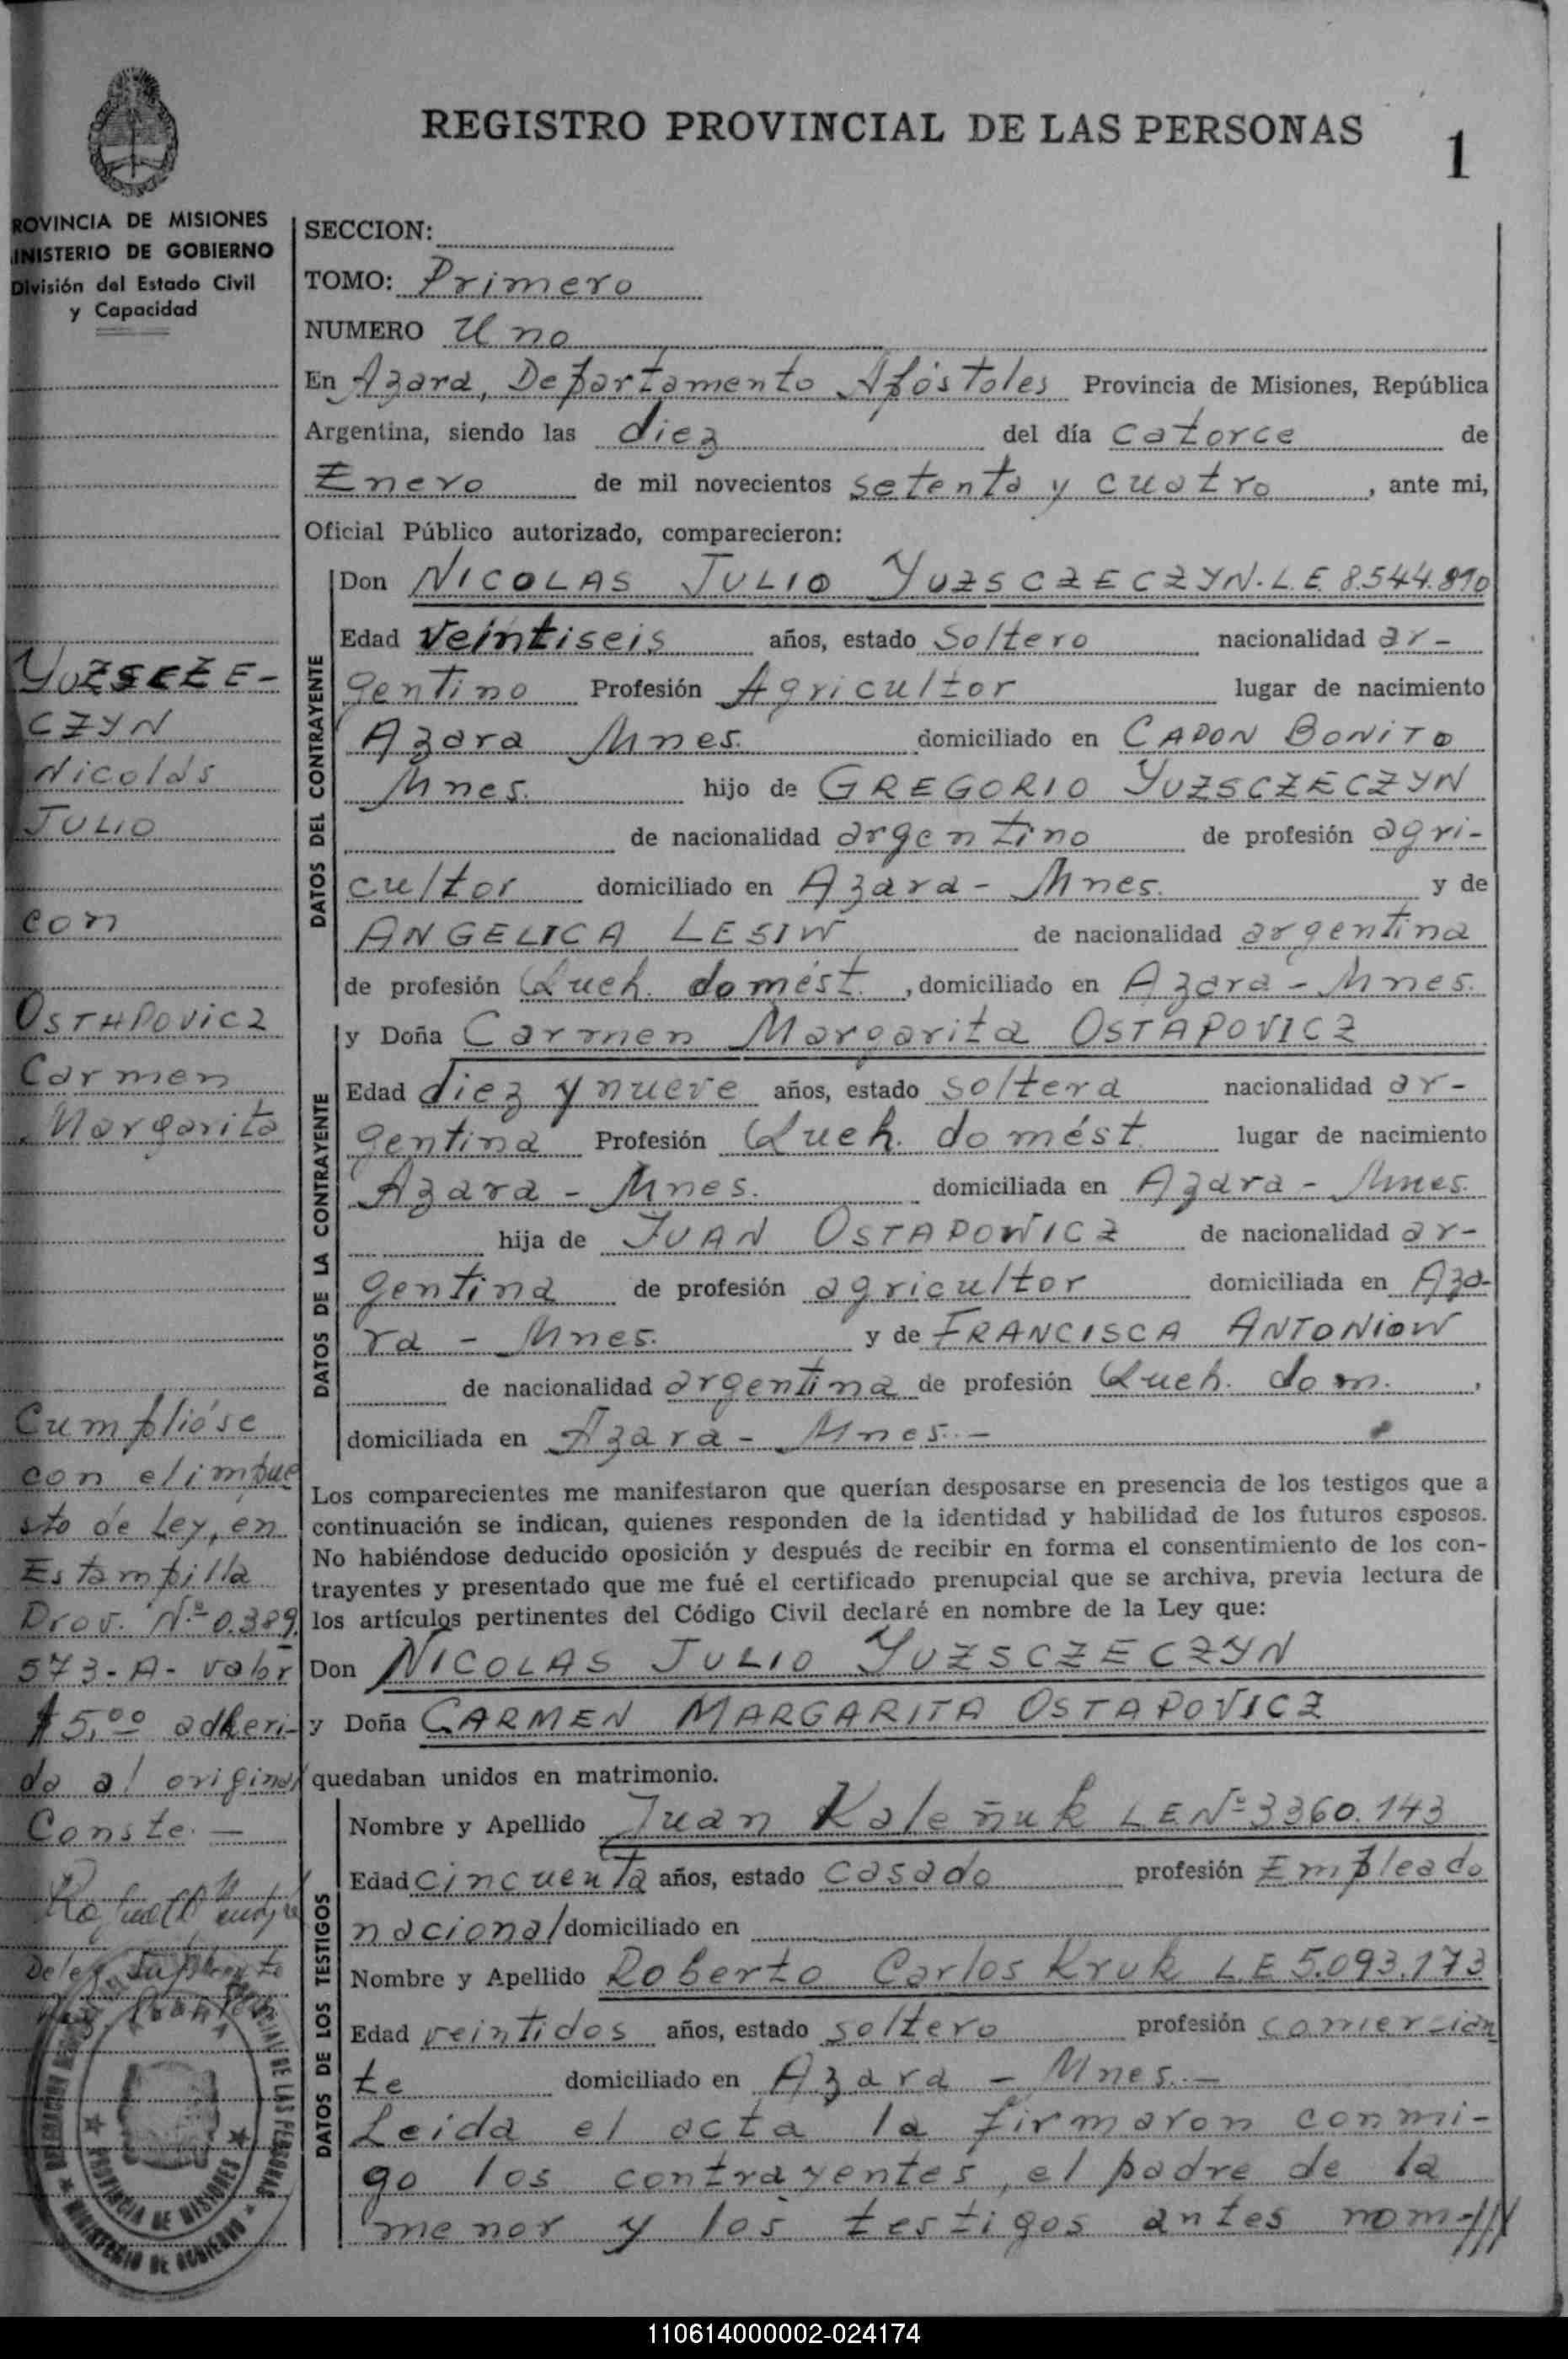 REGISTRO PROVINCIAL DE LAS PERSONAS
1
ROVINCIA DE MISIONES
INISTERIO DE GOBIERNO
División del Estado Civil
y Capacidad
YUZSCZE-
CZYN
Nicolás
JULIO
con
OSTAPOVICZ
Carmen
Margarita
Cumplióse
con el impue
sto de Ley, en
Estampilla
Prov. Nº 0.389.
573-A- valor
$ 5,00 adheri-
do al original
Conste.-
SECCION:
TOMO: Primero
NUMERO Uno
En Azara, Departamento Apóstoles Provincia de Misiones, República
Argentina, siendo las diez del día catorce de
Enero de mil novecientos setenta y cuatro, ante mi,
Oficial Público autorizado, comparecieron:
DATOS DEL CONTRAYENTE
Don NICOLAS JULIO YUZSCZECZYN. L.E. 8.544.810
Edad veintiseis años, estado soltero nacionalidad ar-
gentino Profesión Agricultor lugar de nacimiento
Azara Mnes. domiciliado en CAPON BONITO
Mnes. hijo de GREGORIO YUZSCZECZYN
de nacionalidad argentino de profesión agri-
cultor domiciliado en Azara - Mnes. y de
ANGELICA LESIW de nacionalidad argentina
de profesión Queh. domést., domiciliado en Azara - Mnes.
DATOS DE LA CONTRAYENTE
y Doña Carmen Margarita OSTAPOVICZ
Edad diez y nueve años, estado soltera nacionalidad ar-
gentina Profesión Queh. domést. lugar de nacimiento
Azara - Mnes. domiciliada en Azara - Mnes.
hija de JUAN OSTAPOWICZ de nacionalidad ar-
gentina de profesión agricultor domiciliada en Aza-
ra - Mnes. y de FRANCISCA ANTONIOW
de nacionalidad argentina de profesión Queh. dom.,
domiciliada en Azara - Mnes.-
Los comparecientes me manifestaron que querían desposarse en presencia de los testigos que a
continuación se indican, quienes responden de la identidad y habilidad de los futuros esposos.
No habiéndose deducido oposición y después de recibir en forma el consentimiento de los con-
trayentes y presentado que me fué el certificado prenupcial que se archiva, previa lectura de
los artículos pertinentes del Código Civil declaré en nombre de la Ley que:
Don NICOLAS JULIO YUZSCZECZYN
y Doña CARMEN MARGARITA OSTAPOVICZ
quedaban unidos en matrimonio.
DATOS DE LOS TESTIGOS
Nombre y Apellido Juan Kaleñuk L E Nº 3360.143
Edad cincuenta años, estado casado profesión Empleado
nacional domiciliado en
Nombre y Apellido Roberto Carlos Kruk L.E 5.093.173
Edad veintidos años, estado soltero profesión comercian
te domiciliado en Azara - Mnes.-
Leida el acta la firmaron conmi-
go los contrayentes, el padre de la
menor y los testigos antes nom-///
PROVINCIA DE MISIONES
MINISTERIO DE GOBIERNO
110614000002-024174